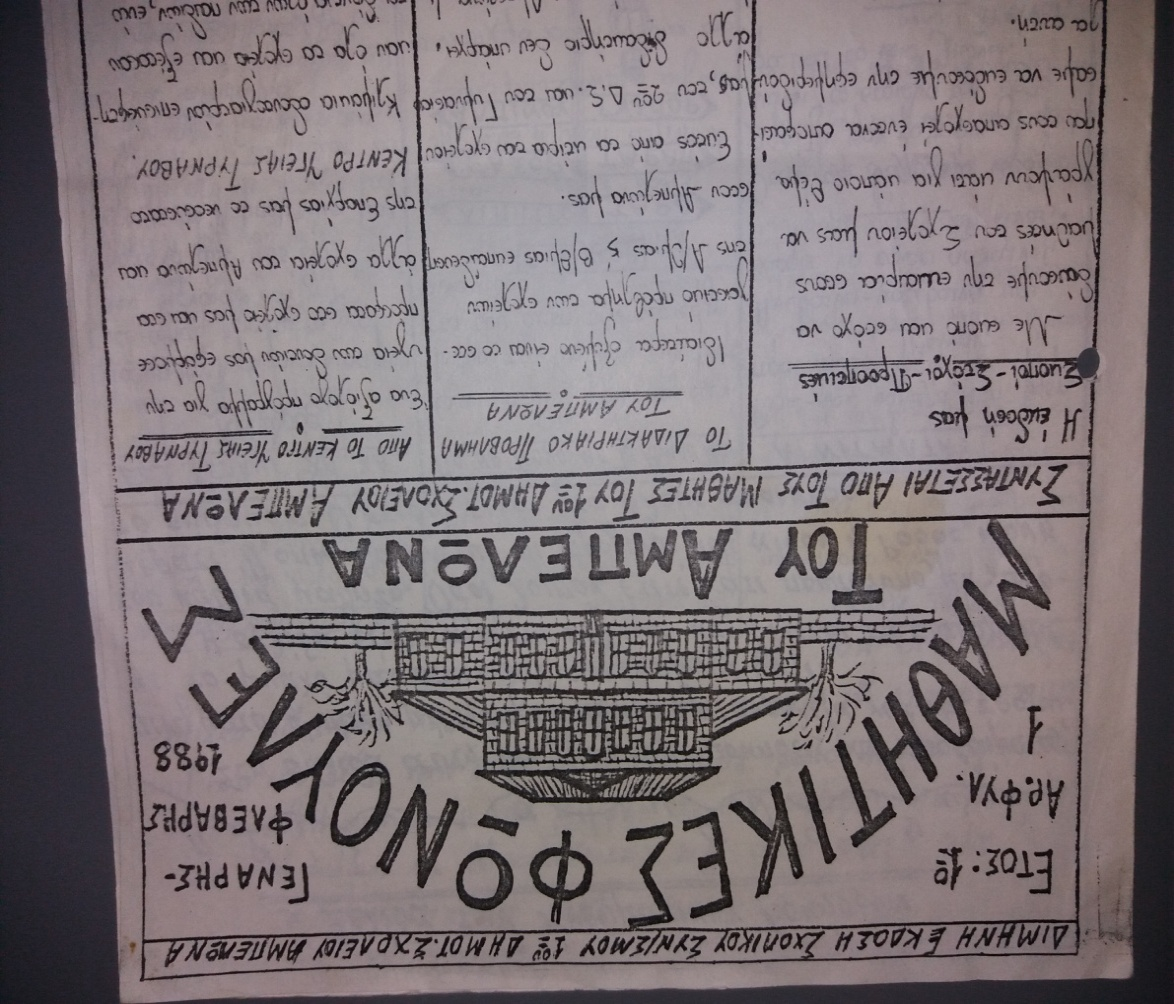 ΔΙΜΗΝΗ ΕΚΔΟΣΗ ΣΧΟΛΙΚΟΥ ΣΥΝ/ΣΜΟΥ 1ου ΔΗΜΟΤ. ΣΧΟΛΕΙΟΥ ΑΜΠΕΛΩΝΑ
ΕΤΟΣ: 1ο
ΑΡ. ΦΥΛ.
1
ΜΑΘΗΤΙΚΕΣ ΦΩΝΟΥΛΕΣ
ΤΟΥ ΑΜΠΕΛΩΝΑ
ΓΕΝΑΡΗΣ-
ΦΛΕΒΑΡΗΣ
1988
ΣΥΝΤΑΣΣΕΤΑΙ ΑΠΟ ΤΟΥΣ ΜΑΘΗΤΕΣ ΤΟΥ 1ου ΔΗΜΟΤ. ΣΧΟΛΕΙΟΥ ΑΜΠΕΛΩΝΑ
Η έκδοσή μας
Σκοποί-Στόχοι-Προοπτικές
Με σκοπό και στόχο να
δώσουμε την ευκαιρία στους
μαθητές του Σχολείου μας να
γράψουν κάτι για κάποιο θέμα
που τους απασχολεί έχουνε αποφασί-
σαμε να εκδώσουμε την εφημεριδούλα
αυτή.
ΤΟ ΔΙΔΑΚΤΗΡΙΑΚΟ ΠΡΟΒΛΗΜΑ
ΤΟΥ ΑΜΠΕΛΩΝΑ
Ιδιαίτερα οξυμένο είναι το στε-
γαστικό πρόβλημα των σχολείων
της Α/θμιας & Β/θμιας εκπαίδευσης
στον Αμπελώνα μας.
Εκτός από τα κτίρια του σχολείου
μας, του 2ου Δ.Σ. και του Γυμνασίου
άλλο διδακτήριο δεν υπάρχει.
ΑΠΟ ΤΟ ΚΕΝΤΡΟ ΥΓΕΙΑΣ ΤΥΡΝΑΒΟΥ
Ένα αξιόλογο πρόγραμμα για την
υγεία των δοντιών μας εφάρμοσε
πρόσφατα στο σχολείο μας και στα
άλλα σχολεία του Αμπελώνα και
της Επαρχίας μας το νεοσύστατο
ΚΕΝΤΡΟ ΥΓΕΙΑΣ ΤΥΡΝΑΒΟΥ.
Κλιμάκιο οδοντιάτρων επισκέφτη-
καν όλα τα σχολεία και εξέτασαν
των παιδιών, ενώ